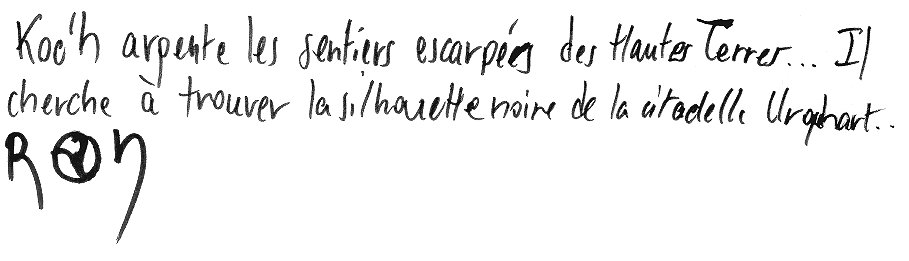 Koc'h arpente les sentiers escarpées des Hautes Terres... Il
cherche à trouver la silhouette noire de la citadelle Urquhart...